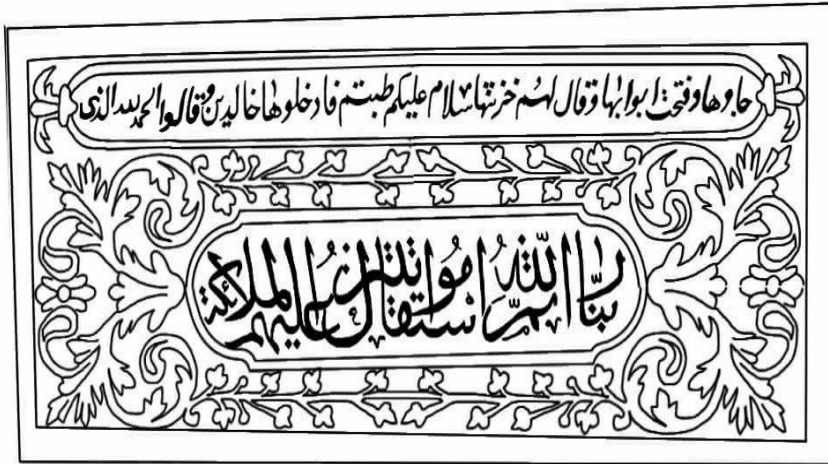 جاوها وفتحت ابوابها وقال لهم خزنتها سلام عليكم طبتم فادخلوها خالدين وقالوا الحمد لله الذى
ربنا الله ثم استقاموا تتنزل عليهم الملائكة